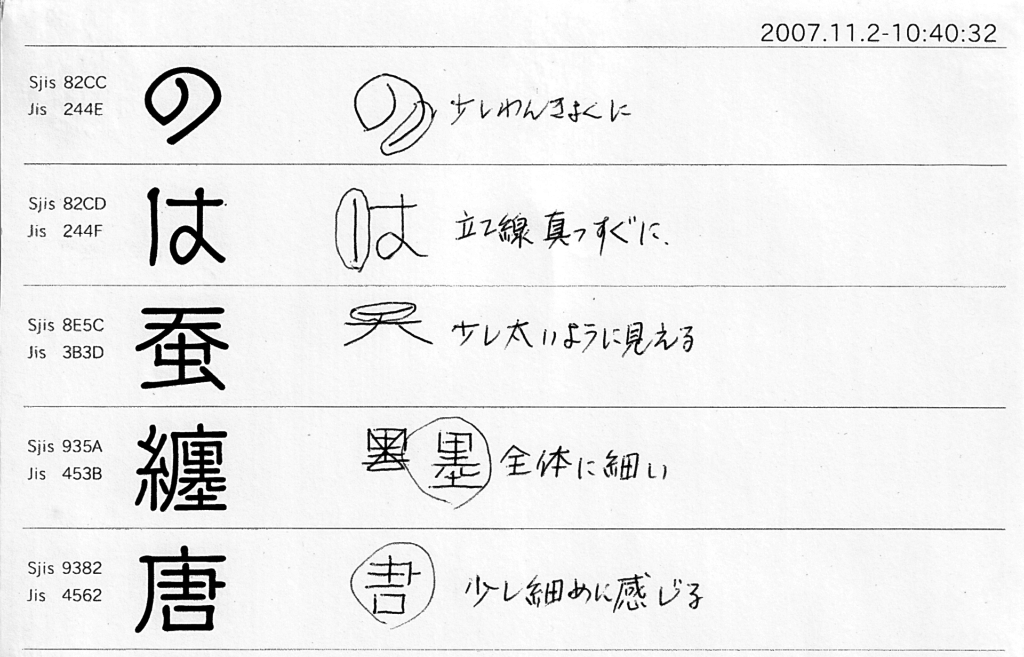 2007.11.2-10:40:32
Sjis 82CC
Jis 244E
の の 少しわんきょくに
Sjis 82CD
Jis 244F
は は 立て線 真っすぐに、
Sjis 8E5C
Jis 3B3D
蚕 天 少し太いように見える
Sjis 935A
Jis 453B
纏 全体に細い
Sjis 9382
Jis 4562
唐 少し細めに感じる